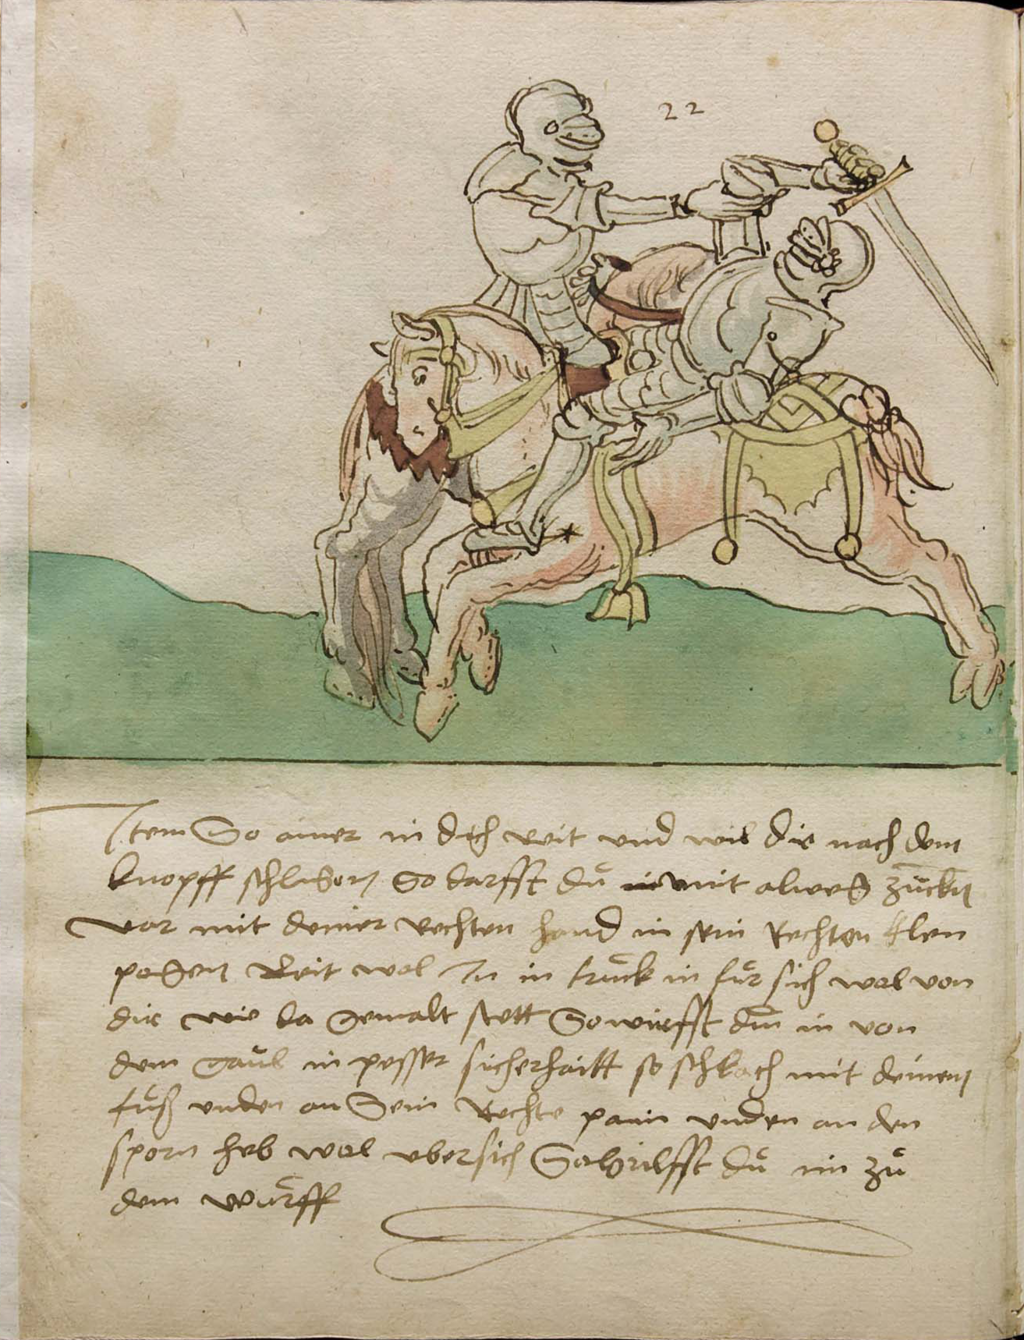 22
Item So ainer in dich reit und wil dir nach dem
knopff schlahen So darfst du mit alweg zucken
var mit deiner rechten hand in sein Rechten Elen
pogen Reit wol In in truck in für sich wol von
dir wie da gemalt stett So wirffst du in von
dem gaul in pesser sicherhaitt so schlach mit deinem
fuß unden an Sein Rechte pain unden an den
sporn heb wol ubersich So hilfft du im zu
dem wurff